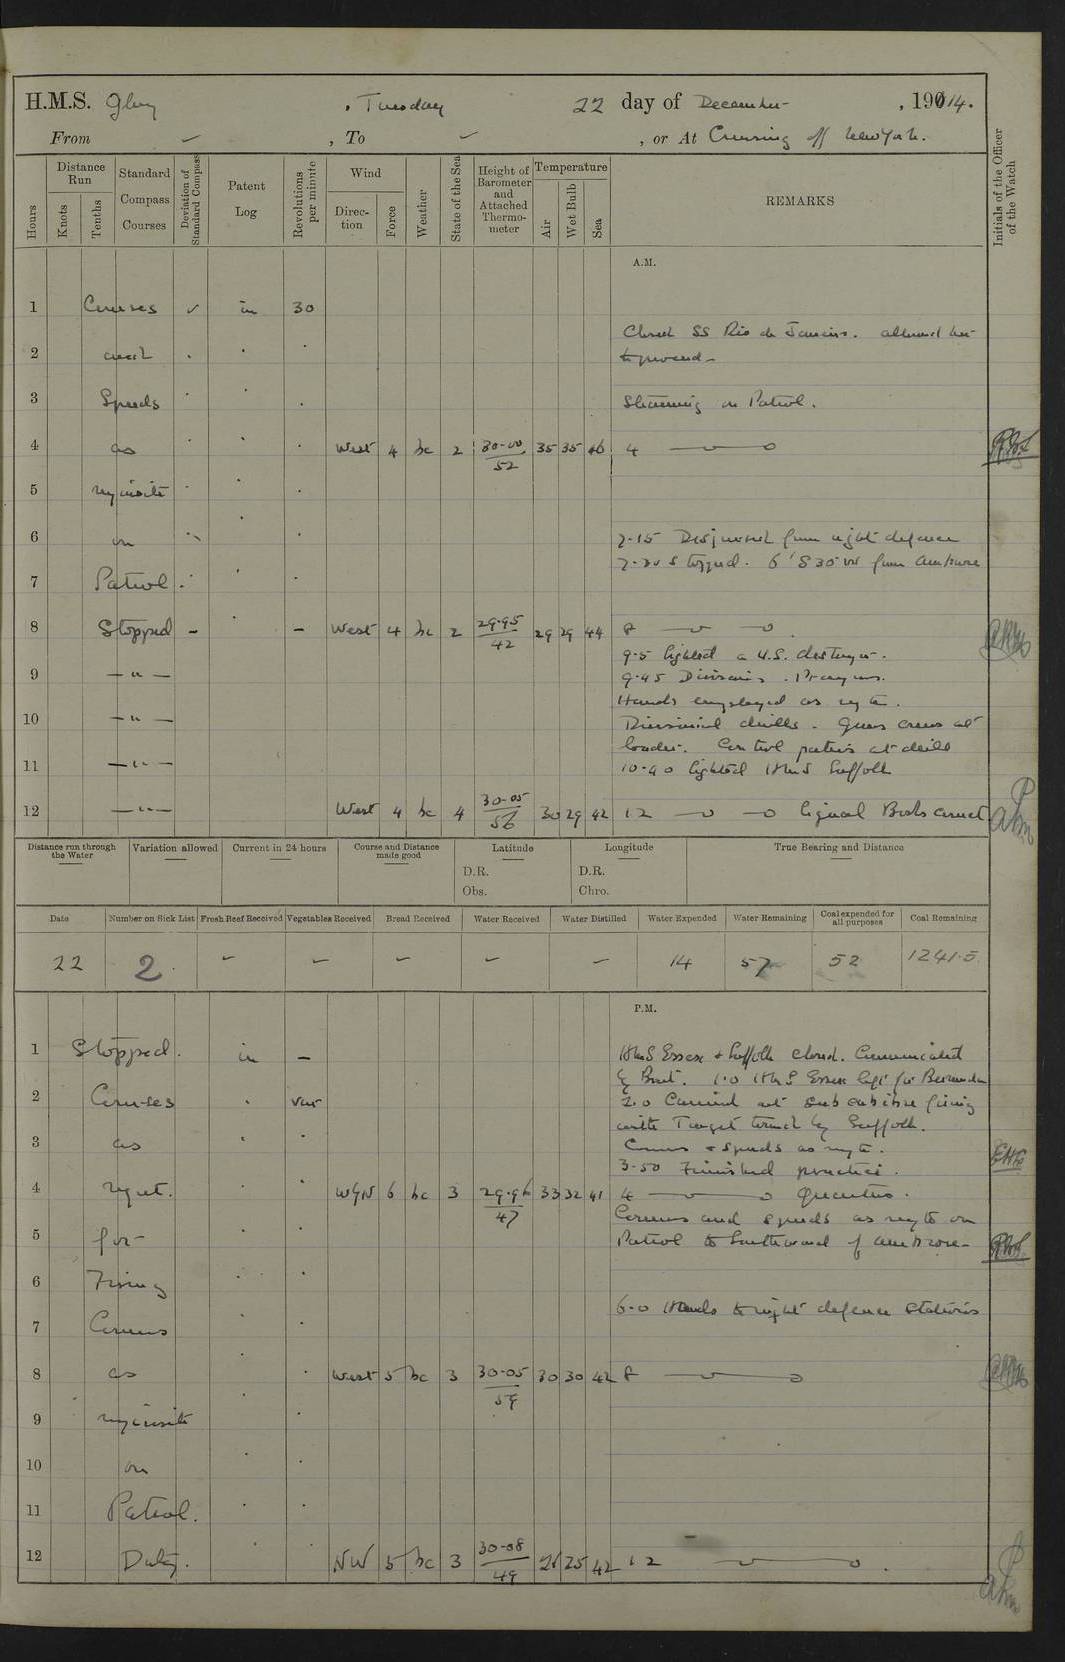 H.M.S. Glory , Tuesday 22 day of December , 1914.
From ✓ , To ✓ , or At Cruising off New York.
Hours
Distance Run
Knots
Tenths
Standard Compass Courses
Deviation of Standard Compass
Patent Log
Revolutions per minute
Wind
Direction
Force
Weather
State of the Sea
Height of Barometer and Attached Thermometer
Temperature
Air
Wet Bulb
Sea
REMARKS
Initials of the Officer of the Watch
A.M.
1 Courses ✓ in 30
Closed SS Rio de Janeiro. allowed her
2 and
to proceed
3 Speeds Steaming on Patrol.
4 as West 4 bc 2 30.00 / 52 35 35 46 4
5 requisite
6 on 7.15 Dispersed from night defence
7.20 Stopped. 6' S 30 W from Ambrose
7 Patrol
8 Stopped – – West 4 bc 2 29.95 / 42 29 29 44 8
9.5 Sighted a U.S. destroyer.
9 — " — 9.45 Divisions. Prayers.
Hands employed as reqte.
10 — " — Divisional drills. Guns crews at
loader. Control parties at drill
11 — " — 10.40 Sighted HMS Suffolk
12 — " — West 4 bc 4 30.05 / 56 30 29 42 12 Signal Books correct
Distance run through the Water
Variation allowed
Current in 24 hours
Course and Distance made good
Latitude
D.R.
Obs.
Longitude
D.R.
Chro.
True Bearing and Distance
Date
Number on Sick List
Fresh Beef Received
Vegetables Received
Bread Received
Water Received
Water Distilled
Water Expended
Water Remaining
Coal expended for all purposes
Coal Remaining
22 2 – – – – – 14 57 52 1241.5
P.M.
1 Stopped. in – HMS Essex & Suffolk closed. Communicated
by Boat. 1.0 HMS Essex left for Bermuda
2 Courses var 2.0 Carried out sub calibre firing
with Target towed by Suffolk.
3 as Courses & speeds as reqte.
3.50 Finished practice.
4 reqet. WGN 6 bc 3 29.96 / 47 33 32 41 4 Quarters.
Courses and speeds as reqte on
5 for Patrol to Southward of Ambrose
6 Firing
6.0 Hands to night defence Stations
7 Courses
8 as West 5 bc 3 30.05 / 59 30 30 42 8
9 requisite
10 on
11 Patrol.
12 Duty. NW 5 bc 3 30.08 / 49 25 42 12